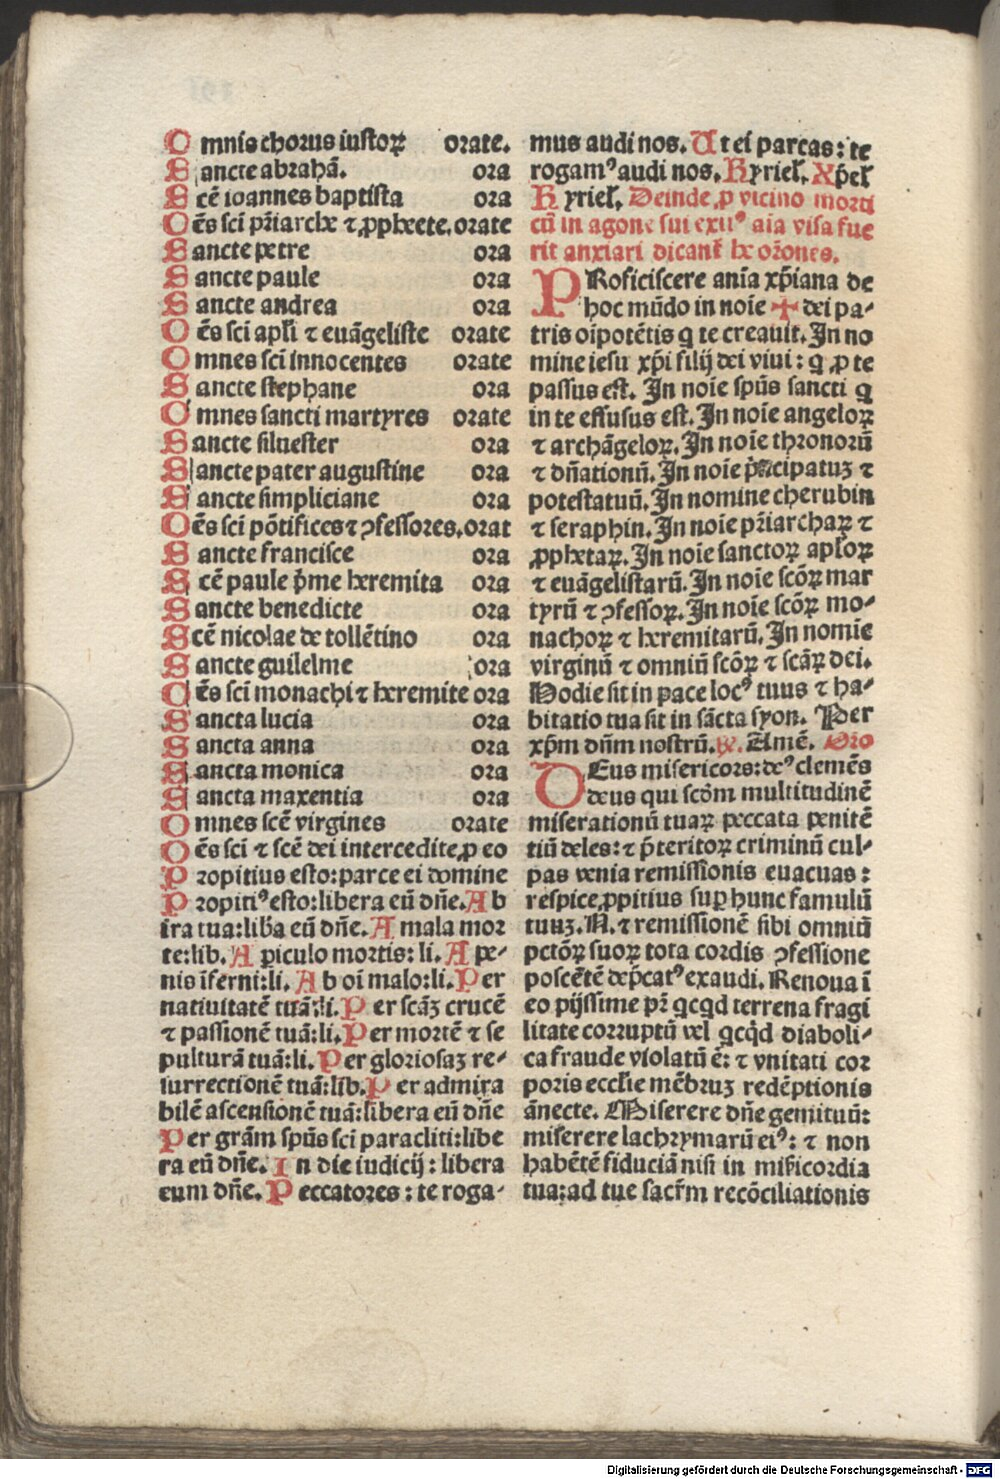 Omnis chorus iustoꝝ orate.
Sancte abrahā. ora
Scē ioannes baptista ora
Oēs sci pr̄iarche ⁊ ꝓphete. orate
Sancte petre ora
Sancte paule ora
Sancte andrea ora
Oēs sci apl̄i ⁊ euāgeliste orate
Omnes sci innocentes orate
Sancte stephane ora
Omnes sancti martyres orate
Sancte siluester ora
Sancte pater augustine ora
Sancte simpliciane ora
Oēs sci pōtifices ⁊ ꝯfessores. orat
Sancte francisce ora
Scē paule p̄me heremita ora
Sancte benedicte ora
Scē nicolae de tollētino ora
Sancte guilelme ora
Oēs sci monachi ⁊ heremite ora
Sancta lucia ora
Sancta anna ora
Sancta monica ora
Sancta maxentia ora
Omnes scē virgines orate
Oēs sci ⁊ scē dei intercedite ꝓ eo
Propitius esto: parce ei domine
Propitiꝰ esto: libera eū dn̄e. Ab
ira tua: lib̄a eū dn̄e. A mala mor
te: lib. A ꝑiculo mortis: li. A pe-
nis īferni: li. Ab oī malo: li. Per
natiuitatē tuā: li. Per scāꝫ crucē
⁊ passionē tuā: li. Per mortē ⁊ se
pulturā tuā: li. Per gloriosaꝫ re-
surrectionē tuā: lib. Per admira
bilē ascensionē tuā: libera eū dn̄e
Per grām spūs sci paracliti: libe
ra eū dn̄e. In die iudicij: libera
eum dn̄e. Peccatores: te roga-
mus audi nos. Ut ei parcas: te
rogamꝰ audi nos. Kyriel. Xp̄el
Kyriel. Deinde ꝓ vicino morti
cū in agone sui exitꝰ aīa visa fue
rit anxiari dicant̄ he or̄ones.
PRoficiscere anīa xp̄iana de
hoc mūdo in noīe ✠ dei pa-
tris oīpotētis q te creauit. In no
mine iesu xp̄i filij dei viui: q ꝓ te
passus est. In noīe spūs sancti q
in te effusus est. In noīe angeloꝝ
⁊ archāgeloꝝ. In noīe thronorū
⁊ dn̄ationū. In noīe p̄ncipatuꝫ ⁊
potestatuū. In nomine cherubin
⁊ seraphin. In noīe pr̄iarchaꝝ ⁊
ꝓphetaꝝ. In noīe sanctoꝝ apl̄oꝝ
⁊ euāgelistarū. In noīe scōꝝ mar
tyrū ⁊ ꝯfessoꝝ. In noīe scōꝝ mo-
nachoꝝ ⁊ heremitarū. In nomīe
virginū ⁊ omniū scōꝝ ⁊ scāꝝ dei.
Hodie sit in pace locꝰ tuus ⁊ ha-
bitatio tua sit in sācta syon. Per
xp̄m dn̄m nostrū. ℟. Amē. Oro
DEus misericors: deꝰ clemēs
deus qui scdm̄ multitudinē
miserationū tuaꝝ peccata penitē
tiū deles: ⁊ p̄teritoꝝ criminū cul-
pas venia remissionis euacuas:
respice ꝓpitius suꝑ hunc famulū
tuuꝫ. N. ⁊ remissionē sibi omniū
pctōꝝ suoꝝ tota cordis ꝯfessione
poscētē dep̄catꝰ exaudi. Renoua ī
eo pijssime pr̄ qcqd terrena fragi
litate corruptū vel qcqd diaboli-
ca fraude violatū ē: ⁊ vnitati cor
poris eccl̄ie mēbruꝫ redēptionis
ānecte. Miserere dn̄e gemituū:
miserere lachrymarū eiꝰ: ⁊ non
habētē fiduciā nisi in mis̄icordia
tua: ad tue sacr̄m recōciliationis
Digitalisierung gefördert durch die Deutsche Forschungsgemeinschaft - DFG